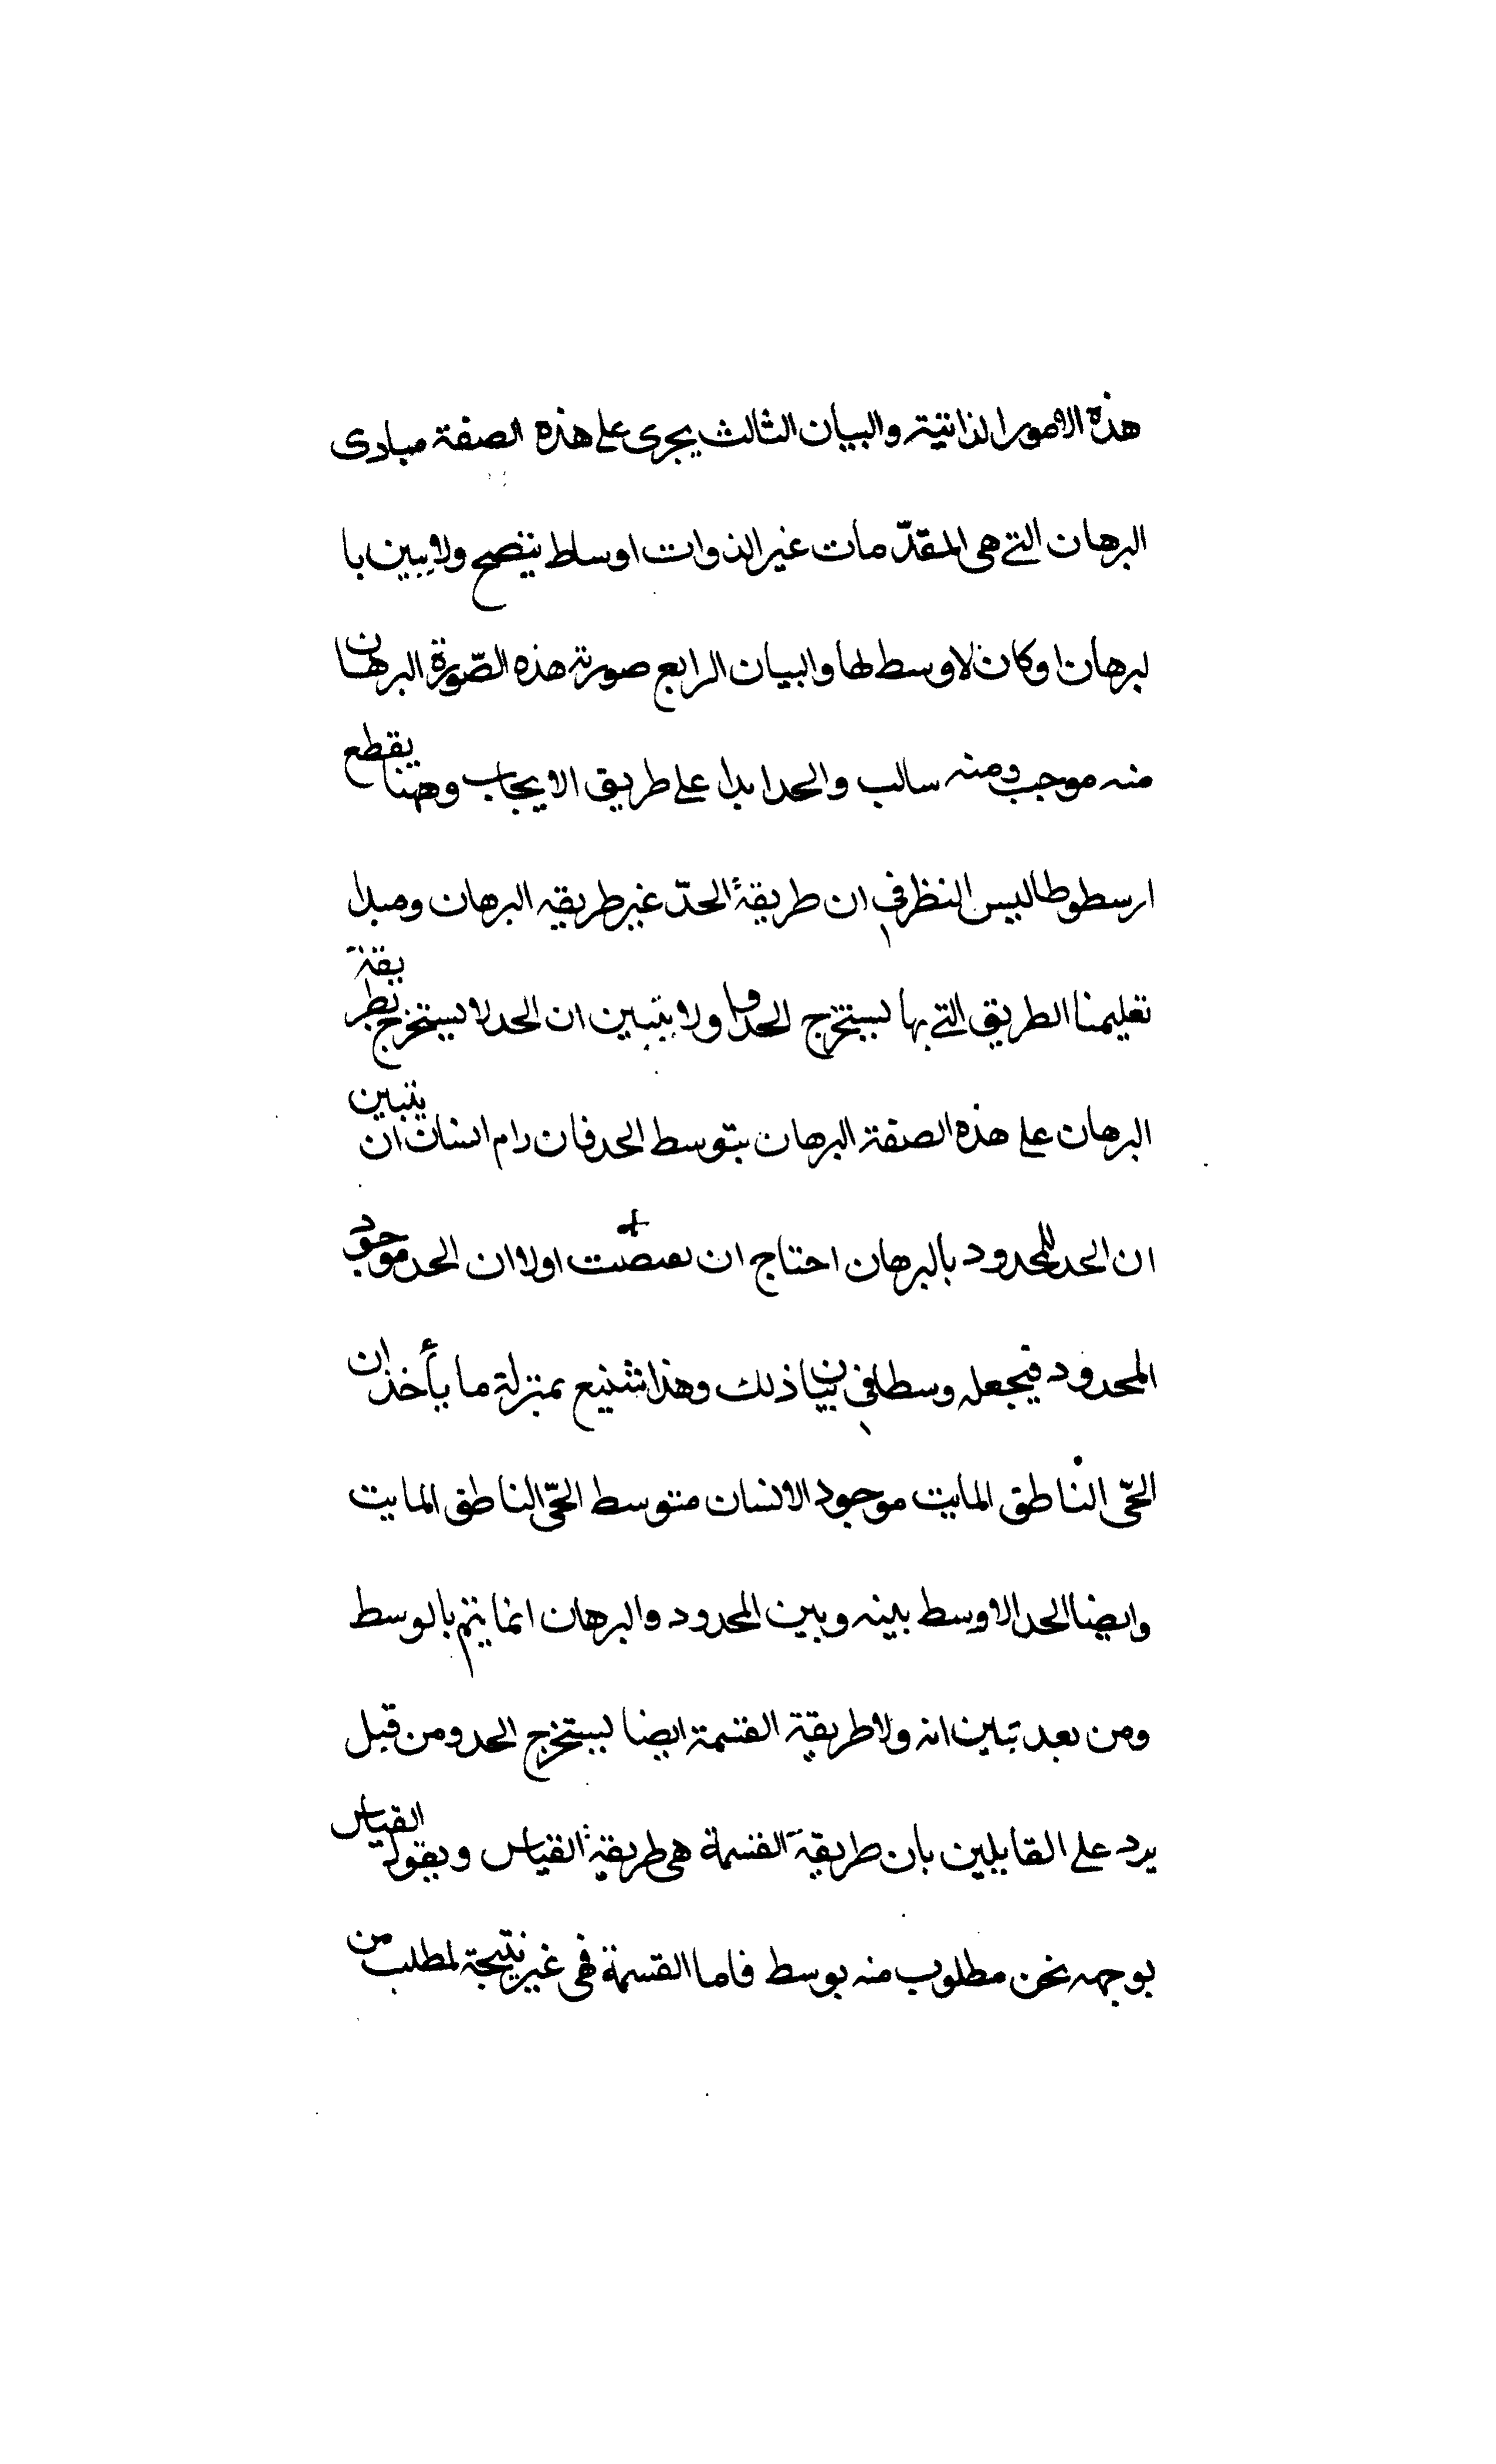 هذه الامور الذاتية والبيان الثالث يجرى على هذه الصفة مبادى
البرهان التى هى المقدّمات غير الذوات اوساط يتضح ولا يبين با
لبرهان او كان لا وسط لها والبيان الرابع صورته هذه الصّورة البرهان
منه موجب ومنه سالب والحد ابدا على طريق الايجاب وههنا يقطع
ارسطوطاليس النظر فى ان طريقة الحدّ غير طريقه البرهان ومبدا
تعليمنا الطريق التى بها يستخرج الحد ولا يتبين ان الحد لا يستخرج بطريقة
البرهان على هذه الصفة البرهان بتوسط الحد فان رام انسان ان يتبين
ان الحد للمحدود بالبرهان احتاج ان اولا ان الحد موجود
المحدود فيجعله وسطا فى بيان ذلك وهذا شنيع بمنزلة ما يأخذ ان
الحّى الناطق المايت موجود الانسان متوسط الحّى الناطق المايت
وايضا الحد الاوسط بينه وبين المحدود والبرهان انما يتم بالوسط
ومن بعد تبين انه ولا طريقة القسمة ايضا يستخرج الحد ومن قبل
يرد على القايلين بان طريقة القسمة هى طريقة القياس ويقول القياس
بوجهه نحن مطلوب منه بوسط فاما القسمة فهى غير نتيجة لمطلب من